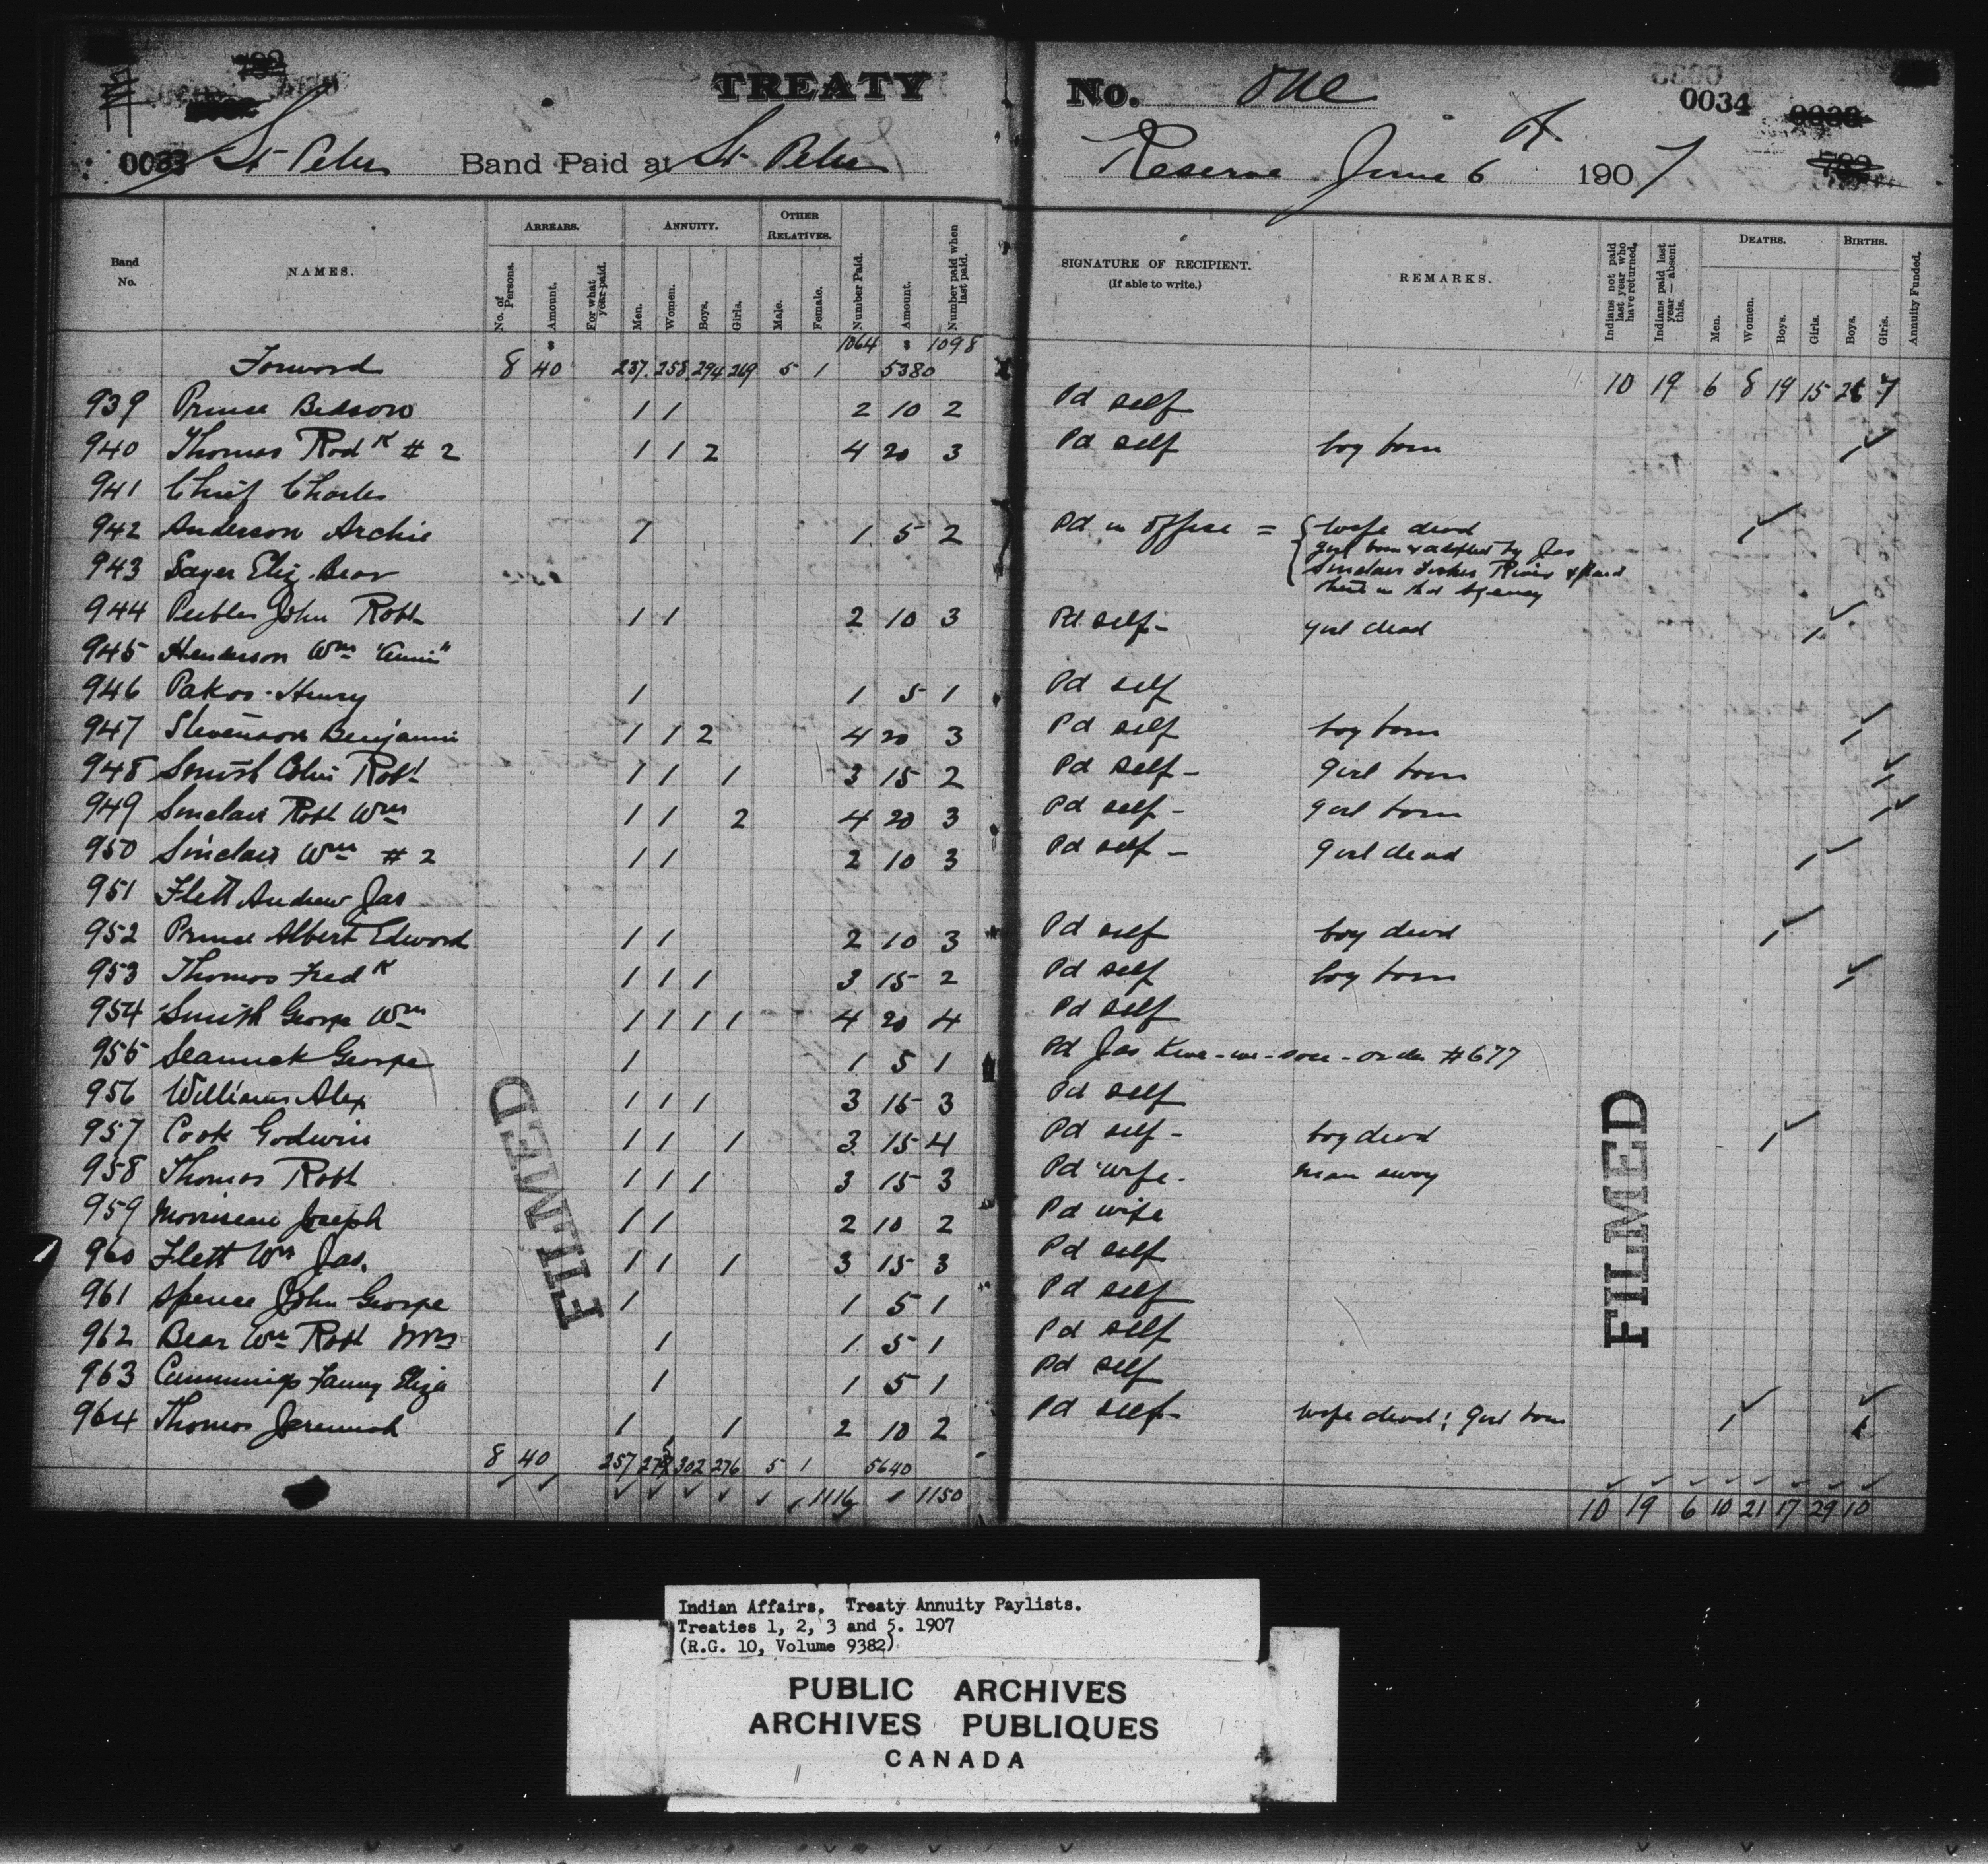 TREATY No. One
0033 St Peter Band Paid at St Peter Reserve June 6th 1907
0034
Band No. NAMES. ARREARS. No. of Persons. Amount. For what year paid. ANNUITY. Men. Women. Boys. Girls. OTHER RELATIVES. Male. Female. Number Paid. Amount. Number paid when last paid. SIGNATURE OF RECIPIENT. (If able to write.) REMARKS. Indians not paid last year who have returned. Indians paid last year—absent this. DEATHS. Men. Women. Boys. Girls. BIRTHS. Boys. Girls. Annuity Funded.
$ 1064 $ 1098
Forward 8 40 237 258 294 269 5 1 5380 10 19 6 8 19 15 7
939 Prince Bedson 1 1 2 10 2 Pd self
940 Thomas Rodk # 2 1 1 2 4 20 3 Pd self boy born 1
941 Chief Charles
942 Anderson Archie 1 1 5 2 Pd in office = { wife dead 1
girl born & adopted by Jas
Sinclair Fisher River & paid
there in that Agency
943 Sayer Eliz. Bear
944 Peebles John Robt 2 10 3 1 1 Pd self - girl dead 1
945 Henderson Wm "Annie"
946 Pakoo - Henry 1 1 5 1 Pd self
947 Stevenson Benjamin 1 1 2 4 20 3 Pd self boy born 1
948 Smith Colin Robt 1 1 1 3 15 2 Pd self - girl born 1
949 Sinclair Robt Wm 1 1 2 4 20 3 Pd self - girl born 1
950 Sinclair Wm # 2 1 1 2 10 3 Pd self - girl dead 1
951 Flett Andrew Jas
952 Prince Albert Edward 1 1 2 10 3 Pd self boy dead 1
953 Thomas Fredk 1 1 1 3 15 2 Pd self boy born 1
954 Smith George Wm 1 1 1 1 4 20 4 Pd self
955 George 1 1 5 1 Pd Jas order #677
956 Williams Alex 1 1 1 3 15 3 Pd self
957 Cook Godwin 1 1 1 3 15 4 Pd self - boy dead 1
958 Thomas Robt 1 1 1 3 15 3 Pd wife - man away
959 Morriseau Joseph 1 1 2 10 2 Pd wife
960 Flett Wm Jas. 1 1 1 3 15 3 Pd self
961 Spence John George 1 1 5 1 Pd self
962 Bear Wm Robt Mrs 1 1 5 1 Pd self
963 Cummings Fanny Eliza 1 1 5 1 Pd self
964 Thomas Jeremiah 1 1 2 10 2 Pd self - wife dead; girl born 1 1
8 40 257 302 276 5 1 5640
1150 10 19 6 10 21 17 29 10
FILMED
FILMED
Indian Affairs. Treaty Annuity Paylists.
Treaties 1, 2, 3 and 5. 1907
(R.G. 10, Volume 9382)
PUBLIC ARCHIVES
ARCHIVES PUBLIQUES
CANADA